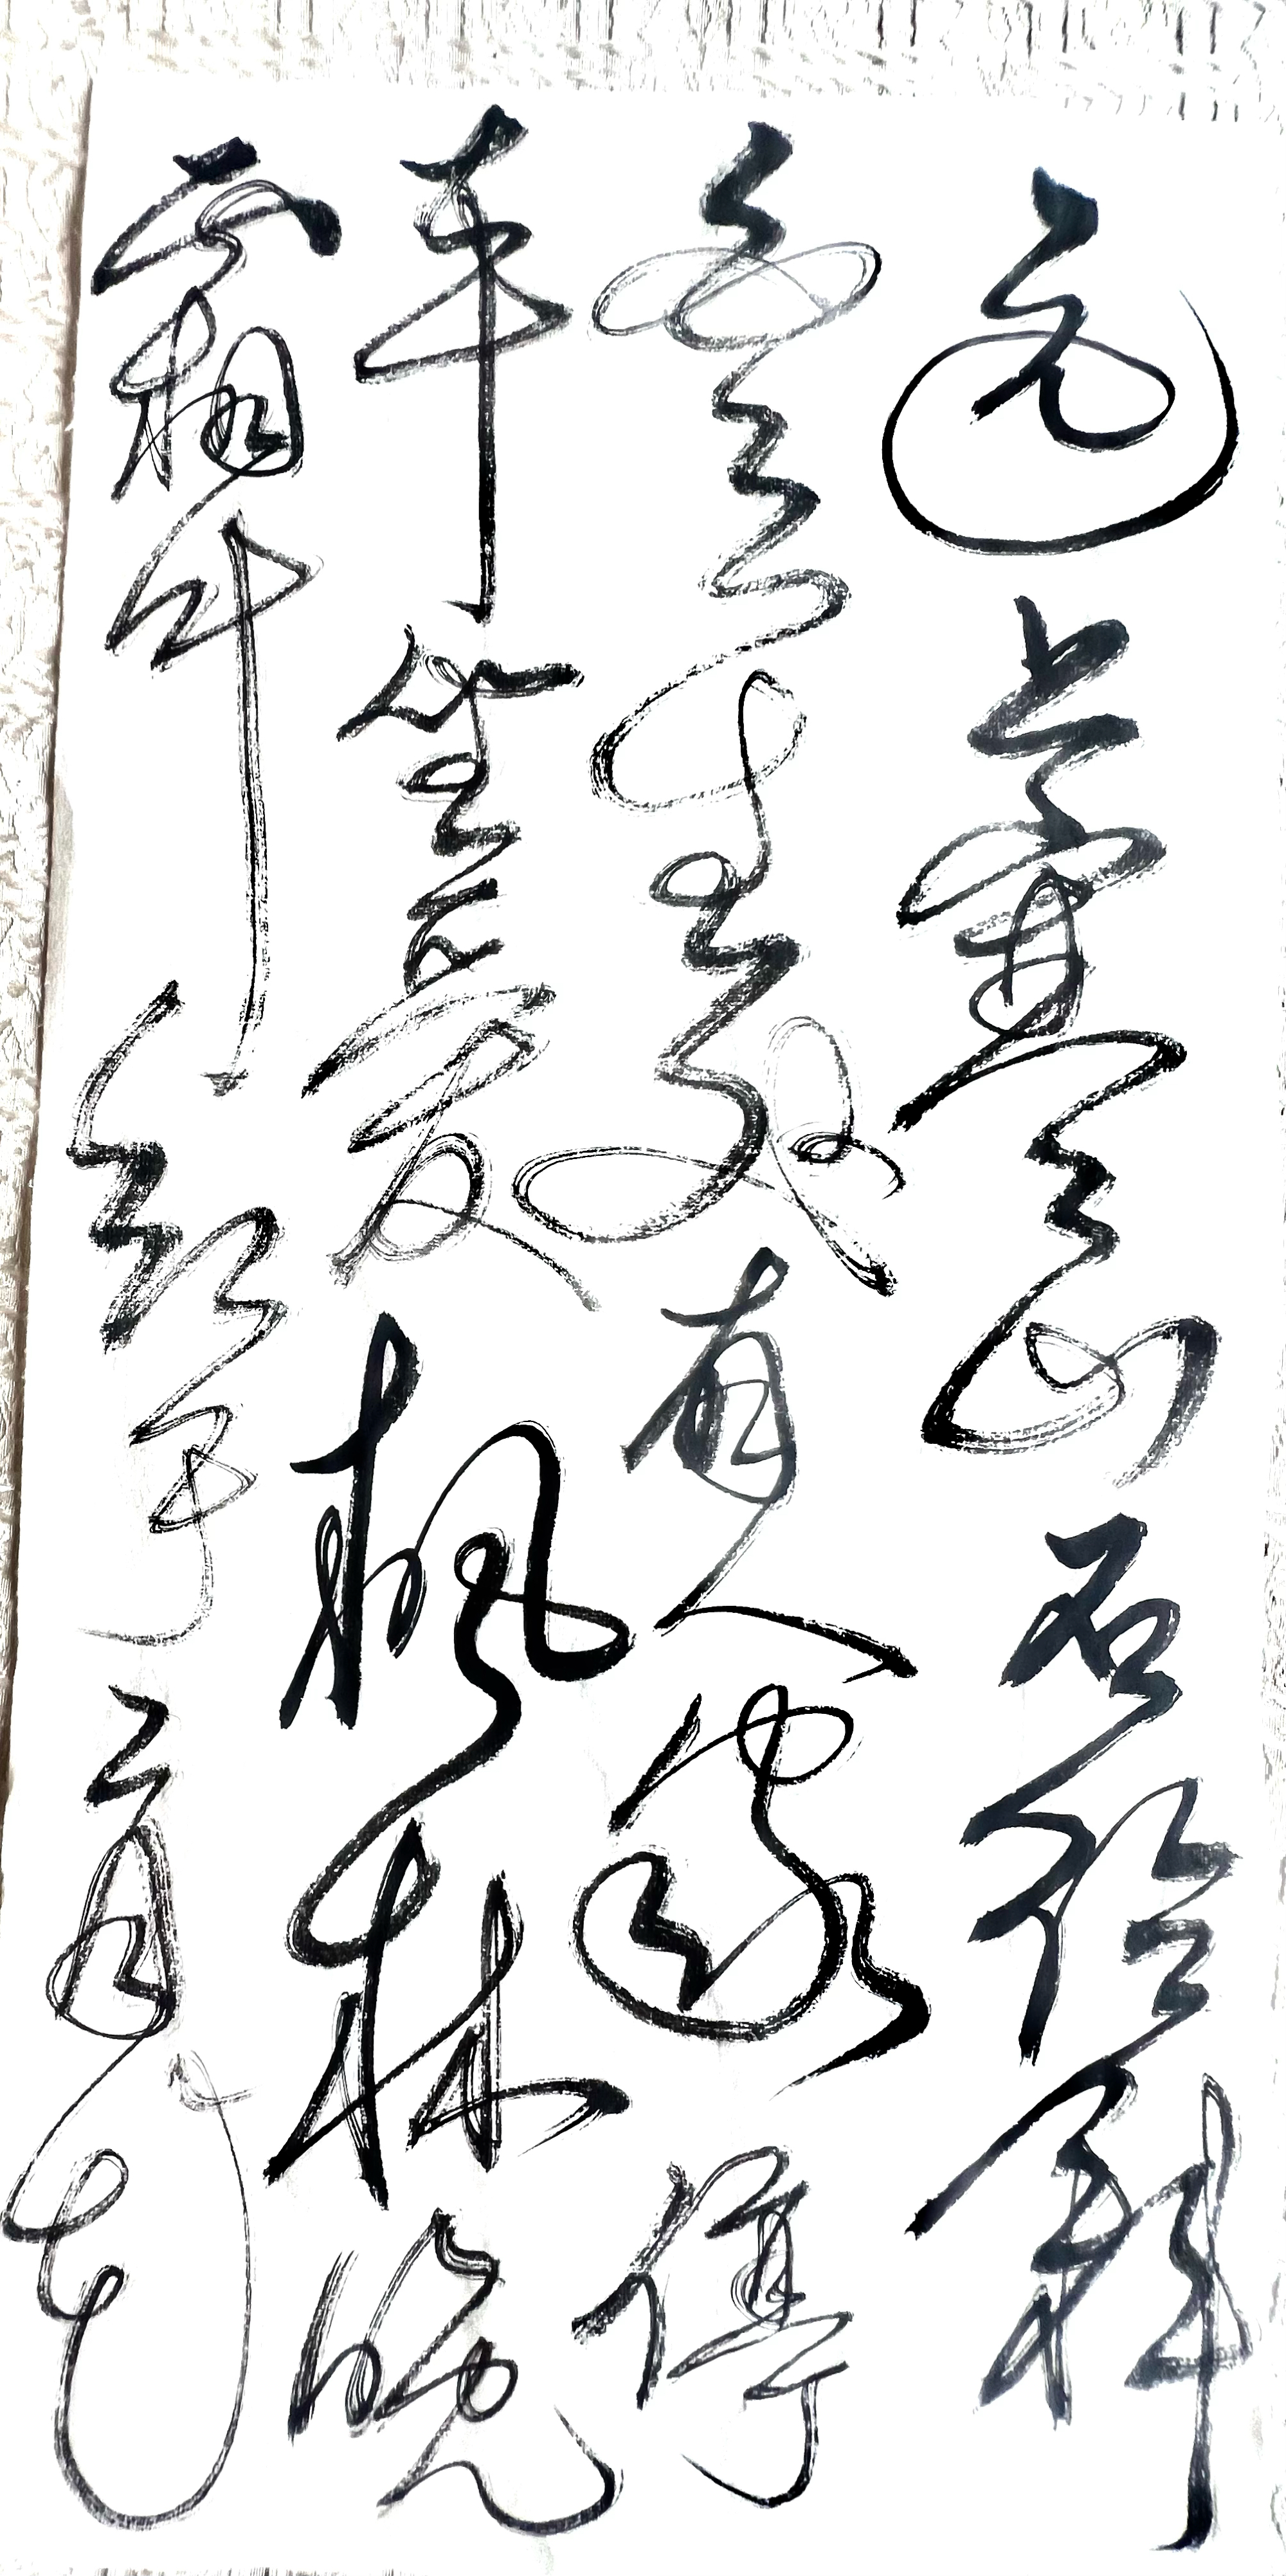 远上寒山石径斜
白云生处有人家停
车坐爱枫林晚
霜叶红于二月花